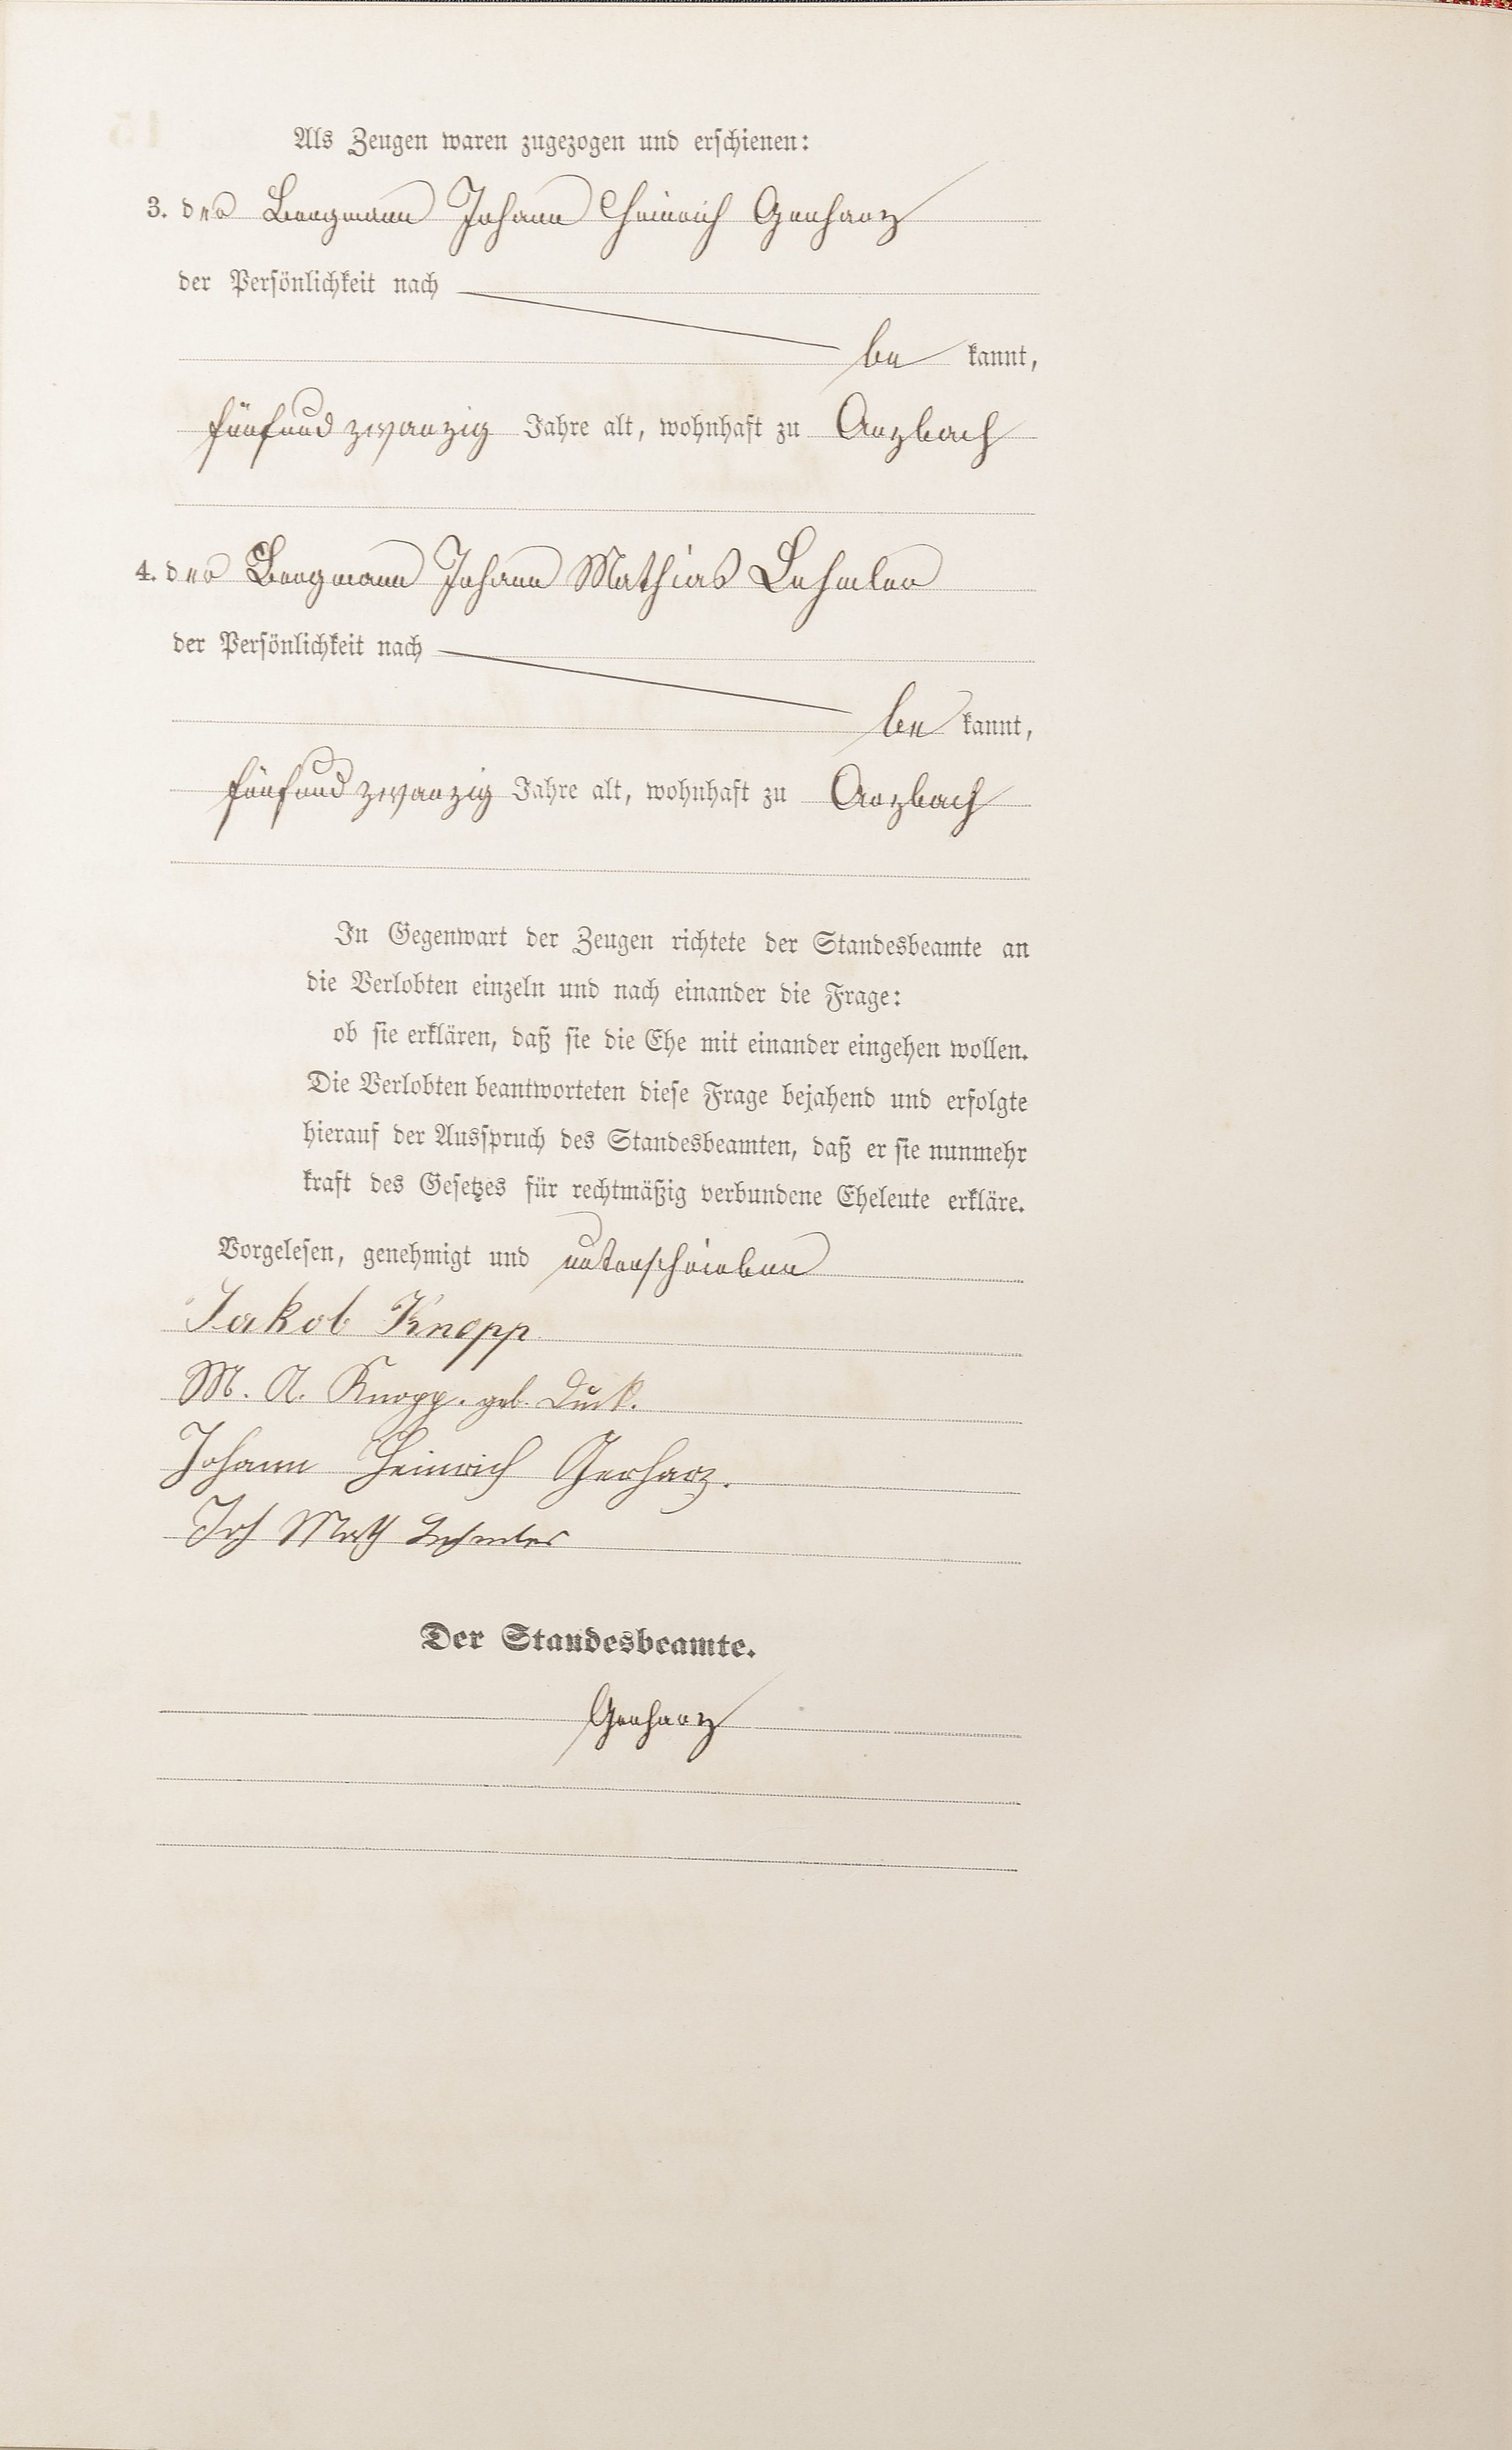 Als Zeugen waren zugezogen und erschienen:
3. der Bergmann Johann Heinrich Gerharz
der Persönlichkeit nach
be kannt,
fünfund zwanzig Jahre alt, wohnhaft zu Arzbach
4. der Bergmann Johann Mathias Lehmler
der Persönlichkeit nach
be kannt,
fünfund zwanzig Jahre alt, wohnhaft zu Arzbach
In Gegenwart der Zeugen richtete der Standesbeamte an
die Verlobten einzeln und nach einander die Frage:
ob sie erklären, daß sie die Ehe mit einander eingehen wollen.
Die Verlobten beantworteten diese Frage bejahend und erfolgte
hierauf der Ausspruch des Standesbeamten, daß er sie nunmehr
kraft des Gesetzes für rechtmäßig verbundene Eheleute erkläre.
Vorgelesen, genehmigt und unterschrieben
Jakob Knopp
M. A. Knopp. geb. Duck.
Johann Heinrich Gerharz.
Joh Math Lehmler
Der Standesbeamte.
Gerharz